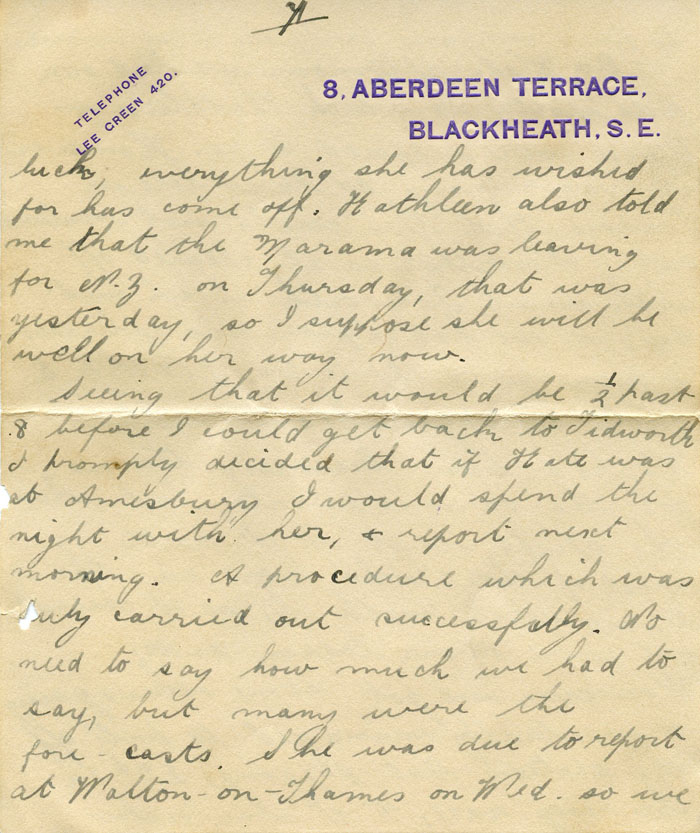 TELEPHONE
LEE GREEN 420.
8, ABERDEEN TERRACE,
BLACKHEATH, S.E.
luck, everything she has wished
for has come off. Kathleen also told
me that the Marama was leaving
for N.Z. on Thursday, that was
yesterday, so I suppose she will be
well on her way now.
Seeing that it would be ½ past
8 before I could get back to Tidworth
I promply decided that if Kate was
at Amesbury I would spend the
night with her, & report next
morning. A procedure which was
duly carried out successfully. No
need to say how much we had to
say, but many were the
fore-casts. She was due to report
at Walton-on-Thames on Wed. so we